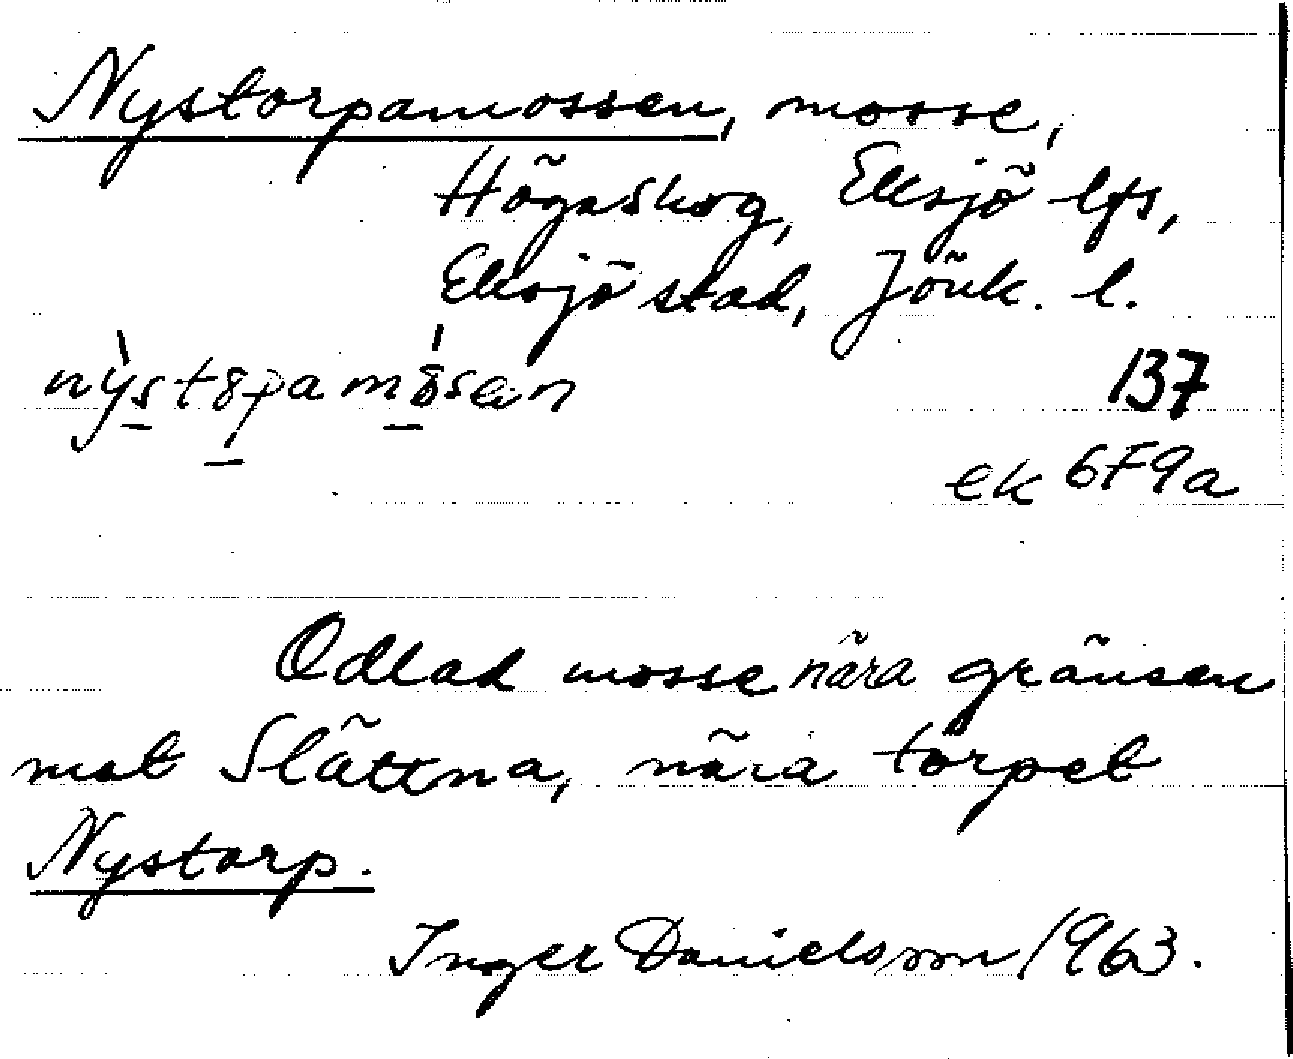 Nystorpamossen, mosse,
Högaskog, Eksjö lfs,
Eksjö stad, Jönk. l.
137
ek 6F9a
Odlad mosse nära gränsen
mot Slättna, nära torpet
Nystorp.
Inger Danielsson 1963.